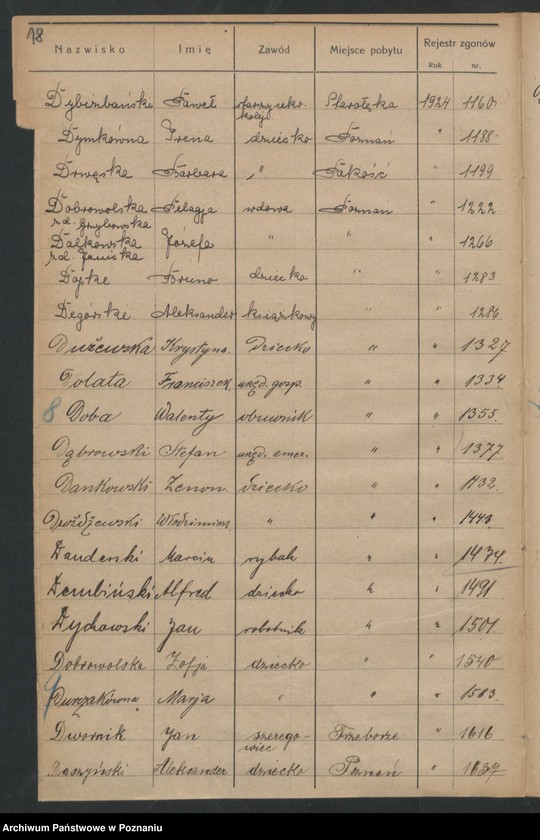 18
Nazwisko Imię Zawód Miejsce pobytu Rejestr zgonów
Rok nr.
Dybizbański Paweł starszy sekr. Starołęka 1924 1160
kolej.
Dymkówna Irena dziecko Poznań " 1188
Drwęska Barbara " Pakość " 1199
Dobrowolska Pelagja wdowa Poznań " 1222
zd. Grzybowska
Dalkowska Józefa " " " 1266
zd. Janicka
Dojtke Bruno dziecko " " 1283
Degórski Aleksander książkowy " " 1286
Dużewska Krystyna. Dziecko " " 1327
Dolata Franciszek urzęd. gosp. " " 1334
8 Doba Walenty obuwnik " " 1355.
Dąbrowski Stefan urzęd. emer. " " 1377
Dankowski Zenon. Dziecko " " 1432
Drożdżewski Włodzimierz " " " 1443
Danderski Marcin rybak " " 1474.
Dembiński Alfred dziecko " " 1491
Dychowski Jan robotnik " " 1501
Dobrowolska Zofja dziecko " " 1540
9 Durczakówna Marja " " " 1583
Dwornik Jan szerego- Trzeborze " 1616
wiec
Daszyński Aleksander dziecko Poznań " 1637
Archiwum Państwowe w Poznaniu